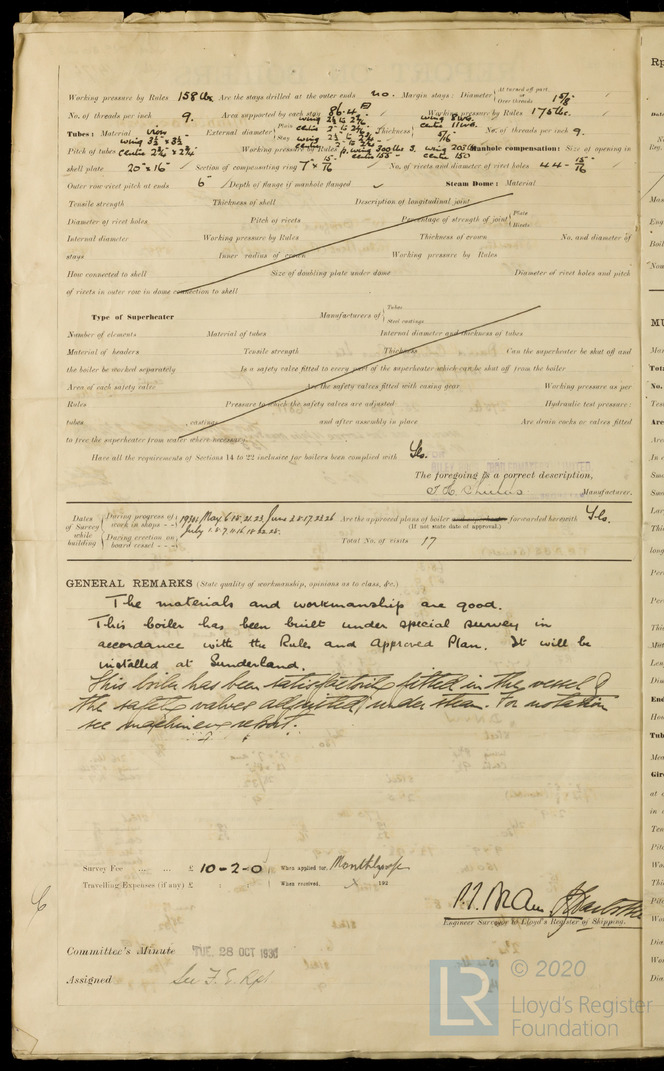 Working pressure by Rules 158 lbs. Are the stays drilled at the outer ends no. Margin stays: Diameter { At turned off part, or Over threads 1 5/8"
No. of threads per inch 9. Area supported by each stay Working pressure by Rules 175 lbs.
Tubes: Material iron External diameter { Plain Stay Thickness { 5/16 No. of threads per inch 9.
Pitch of tubes wing 3¾ x 3½ centre 2¾ x 2¾ Working pressure by Rules Manhole compensation: Size of opening in
shell plate 20" x 16" Section of compensating ring 7" x 15/16 No. of rivets and diameter of rivet holes 44 - 15/16
Outer row rivet pitch at ends 6" Depth of flange if manhole flanged Steam Dome: Material
Tensile strength Thickness of shell Description of longitudinal joint
Diameter of rivet holes Pitch of rivets Percentage of strength of joint { Plate Rivets
Internal diameter Working pressure by Rules Thickness of crown No. and diameter of
stays Inner radius of crown Working pressure by Rules
How connected to shell Size of doubling plate under dome Diameter of rivet holes and pitch
of rivets in outer row in dome connection to shell
Type of Superheater Manufacturers of { Tubes Steel castings
Number of elements Material of tubes Internal diameter and thickness of tubes
Material of headers Tensile strength Thickness Can the superheater be shut off and
the boiler be worked separately Is a safety valve fitted to every part of the superheater which can be shut off from the boiler
Area of each safety valve Are the safety valves fitted with easing gear Working pressure as per
Rules Pressure to which the safety valves are adjusted Hydraulic test pressure:
tubes , castings and after assembly in place Are drain cocks or valves fitted
to free the superheater from water where necessary
Have all the requirements of Sections 14 to 22 inclusive for boilers been complied with Yes.
The foregoing is a correct description,
Manufacturer.
Dates of Survey while building { During progress of work in shops - - } 1930 May 6.15.21.23. June 2.8.17.23.26 Are the approved plans of boiler and superheater forwarded herewith Yes.
(If not state date of approval.)
{ During erection on board vessel - - - } Total No. of visits 17
GENERAL REMARKS (State quality of workmanship, opinions as to class, &c.)
The materials and workmanship are good.
This boiler has been built under special survey in
accordance with the Rules and Approved Plan. It will be
installed at Sunderland.
This boiler has been satisfactorily fitted in the vessel &
the safety valves adjusted under steam. For notation
see machinery report.
Survey Fee ... ... £ 10-2-0 When applied for, Monthly
Travelling Expenses (if any) £ : : When received, 192
Engineer Surveyor to Lloyd's Register of Shipping.
Committee's Minute TUE. 28 OCT 1930
Assigned See F. E. Rpt.
© 2020
LR
Lloyd's Register
Foundation